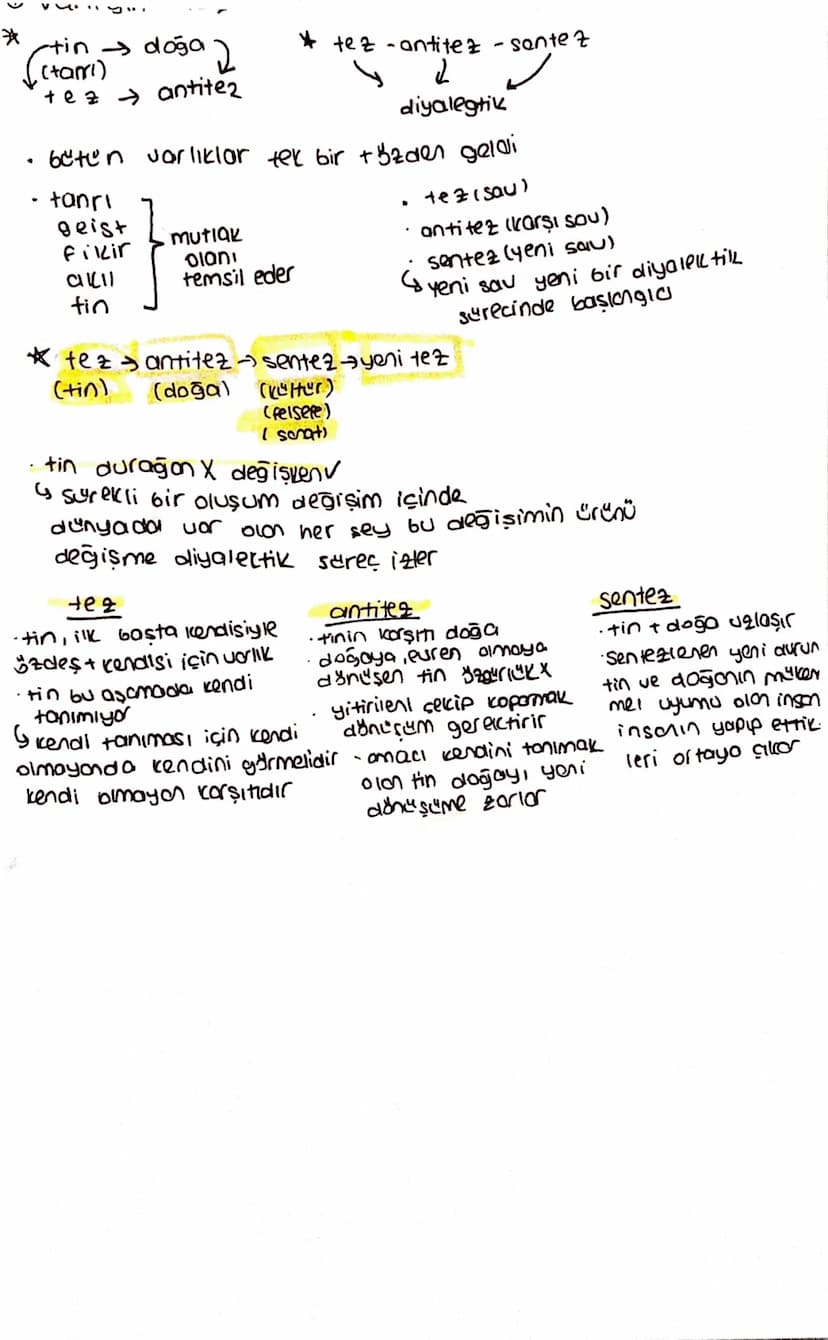 * tin → doğa
(tanrı)
tez → antitez
* tez - antitez - sentez
diyalegtik
• bütün varlıklar tek bir tözden geldi
• tanrı
geist
fikir
akıl
tin
mutlak
olanı
temsil eder
• tez (sav)
• antitez (karşı sav)
• sentez (yeni sav)
↳ yeni sav yeni bir diyalektik
sürecinde başlangıcı
★ tez → antitez → sentez → yeni tez
(tin) (doğa) (kültür)
(felsefe)
(sanat)
• tin durağan X değişken ✓
↳ sürekli bir oluşum değişim içinde
dünyada var olan her şey bu değişimin ürünü
değişme diyalektik süreç izler
tez
• tin, ilk başta kendisiyle
özdeş + kendisi için varlık
• tin bu aşamada kendi
tanımıyor
↳ kendi tanıması için kendi
olmayanda kendini görmelidir
kendi olmayan karşıtıdır
antitez
• tinin karşıtı doğa
• doğaya, evren olmaya
dönüşen tin özgürlük X
• yitirileni çekip koparmak
dönüşüm gerektirir
- amacı kendini tanımak
olan tin doğayı yeni
dönüşüme zorlar
sentez
• tin + doğa uzlaşır
• sentezlenen yeni durum
tin ve doğanın müken
mel uyumu olan insan
insanın yapıp ettik
leri ortaya çıkar